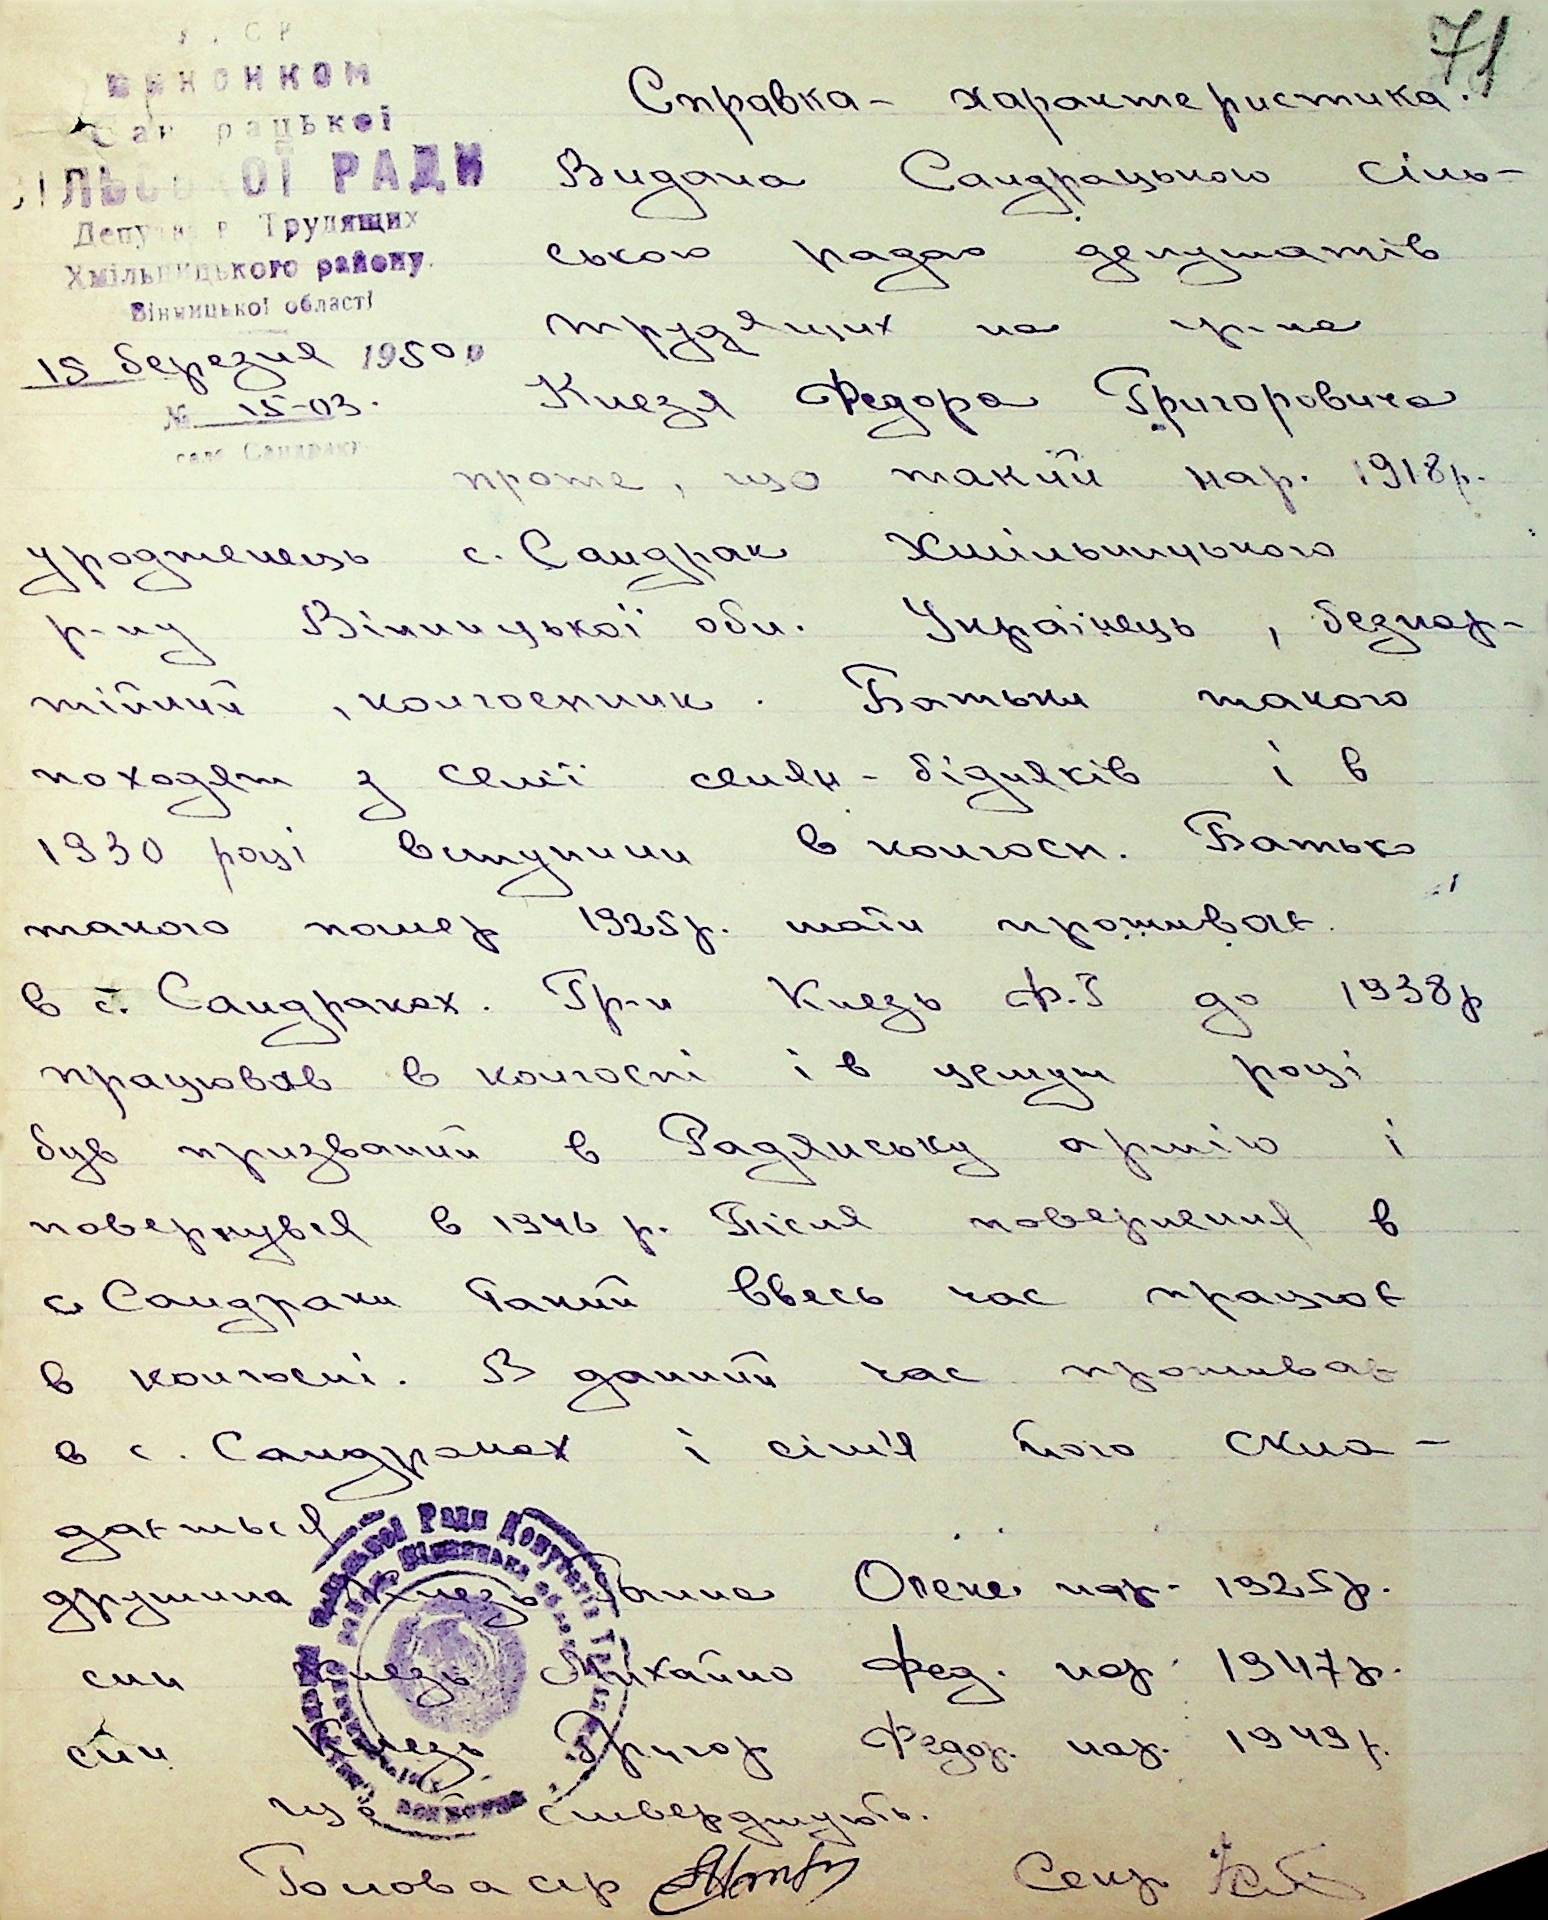 71
УРСР
виконком
Сандрацької
СІЛЬСЬКОЇ РАДИ
Депутатів Трудящих
Хмільницького району
Вінницької області
15 березня 1950 р
№ 15-03.
село Сандраки
Справка - характеристика.
Видана Сандрацькою сіль-
ською радою депутатів
трудящих на гр-на
Князя Федора Григоровича
проте, що такий нар. 1918р.
уродженець с. Сандрак Хмільницького
р-ну Вінницької обл. Українець, безпар-
тійний, колгоспник. Батьки такого
походят з семї селян-бідняків і в
1930 році вступили в колгосп. Батько
такого помер 1925р. мати проживає
в с. Сандраках. Гр-н Князь Ф.Г до 1938р
працював в колгоспі і в цьому році
був призваний в Радянську армію і
повернувся в 1946 р. Після повернення в
с Сандраки такий ввесь час працює
в колгоспі. В даний час проживає
в с. Сандраках і сім'я його скла-
дається
дружина Князь Ганна Олек. нар. 1925р.
син Князь Михайло Фед. нар. 1947р.
син Князь Григор Федор. нар. 1949р.
це й стверджують.
Голова с/р
Секр